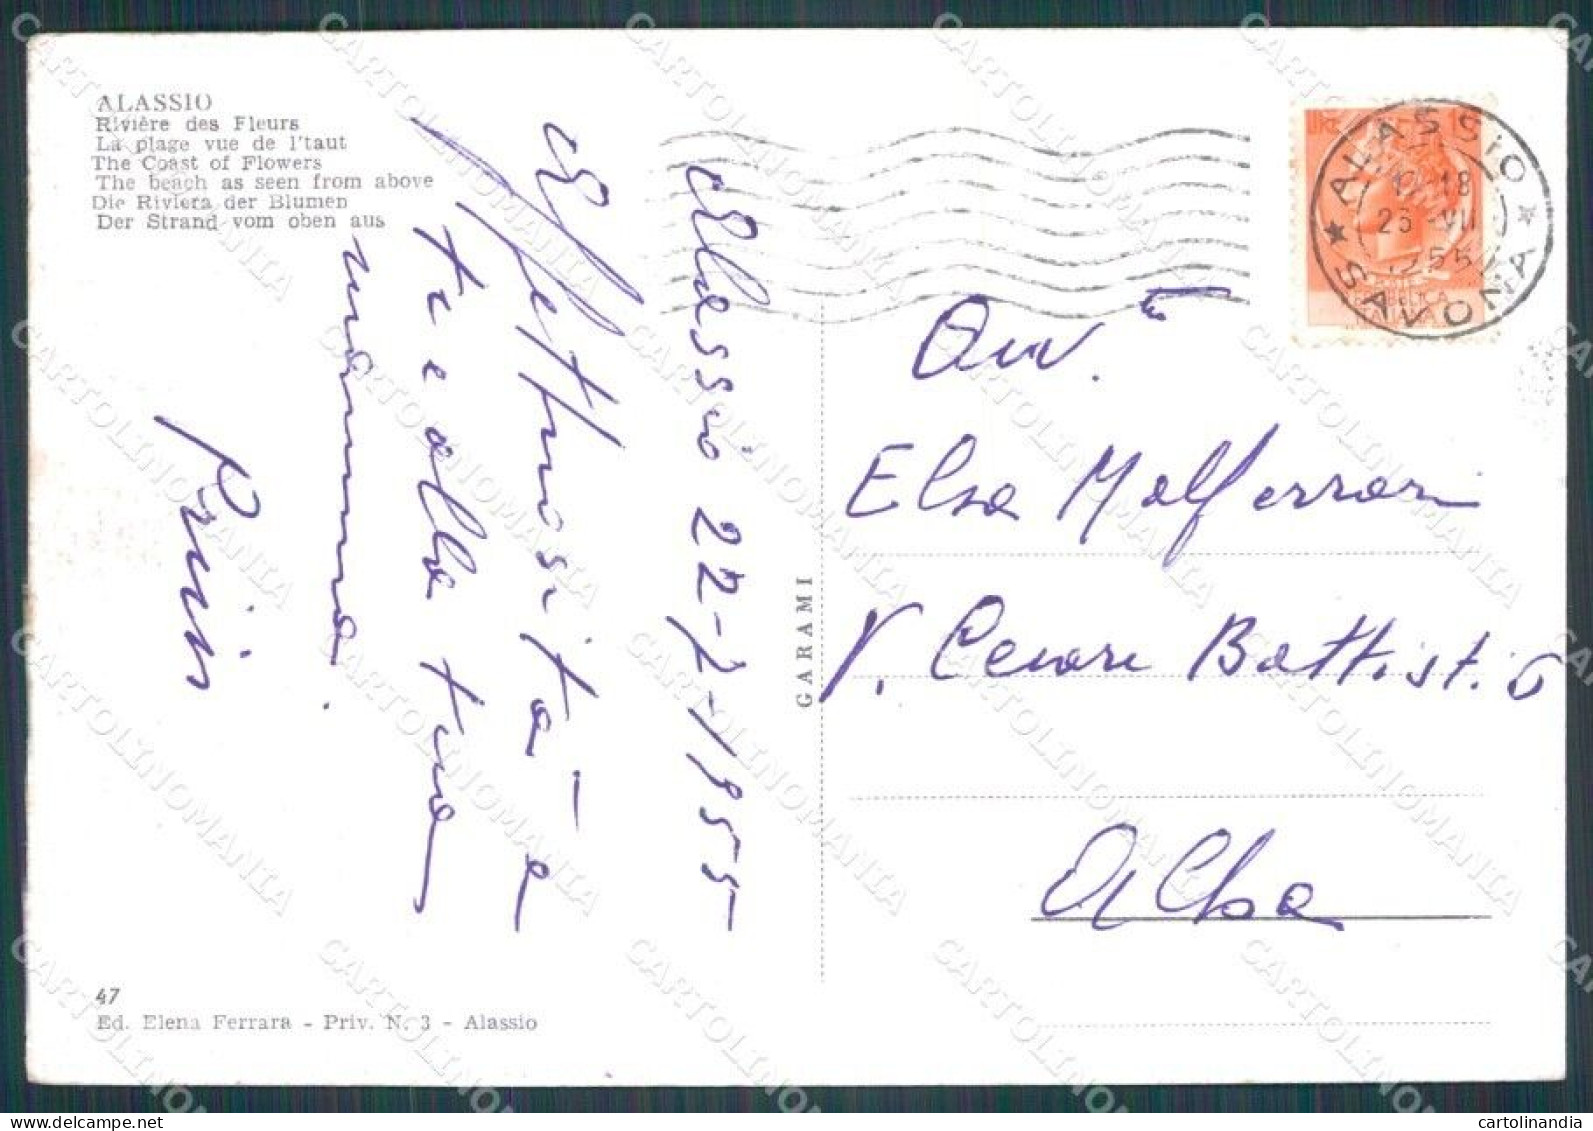 ALASSIO
Rivière des Fleurs
La plage vue de l'taut
The Coast of Flowers
The beach as seen from above
Die Riviera der Blumen
Der Strand vom oben aus
Alassio 22-7-1955
Affettuosità a
te e alla tua
mamma.
47
Ed. Elena Ferrara - Priv. N. 3 - Alassio
GARAMI
LIRE
ALASSIO
SAVONA
Elsa Malferrari
V. Cesare Battisti 6
Alba
CARTOLINOMANIA
cartolinandia